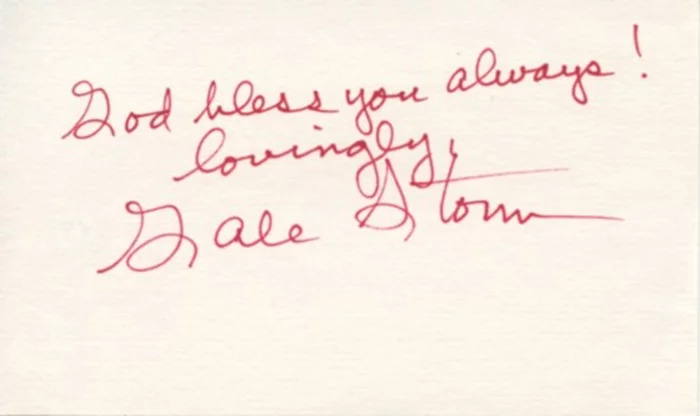 God bless you always!
lovingly,
Gale Storm